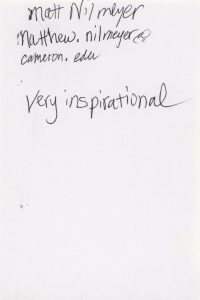 Matt Nilmeyer
Matthew.nilmeyer@
cameron.edu
Very inspirational